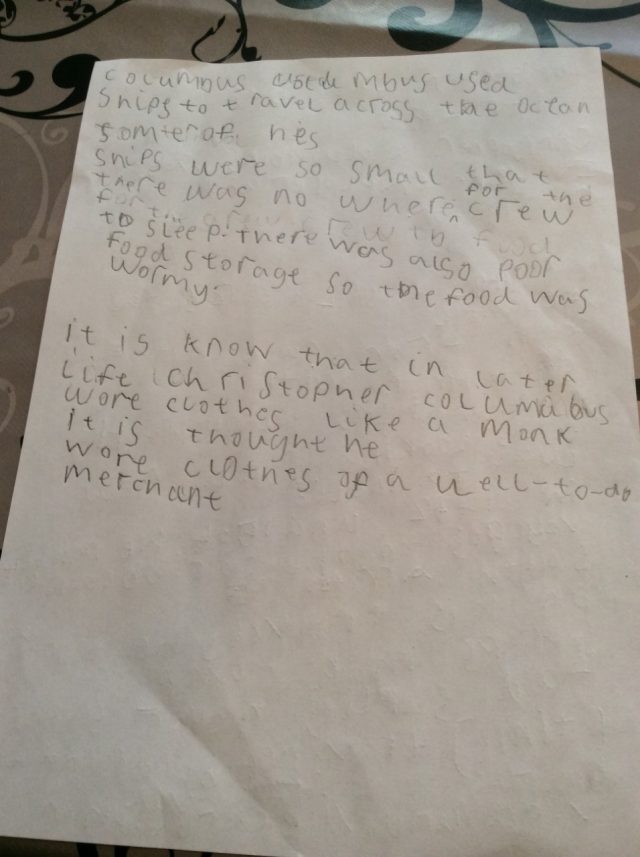 columbus mbus used
ships to travel across the ocean
some of his
ships were so small that
there was no where for the crew
to sleep. there was also poor
food storage so the food was
wormy.
it is know that in later
life christopher columbus
wore clothes like a monk
it is thought he
wore clothes of a well-to-do
merchant